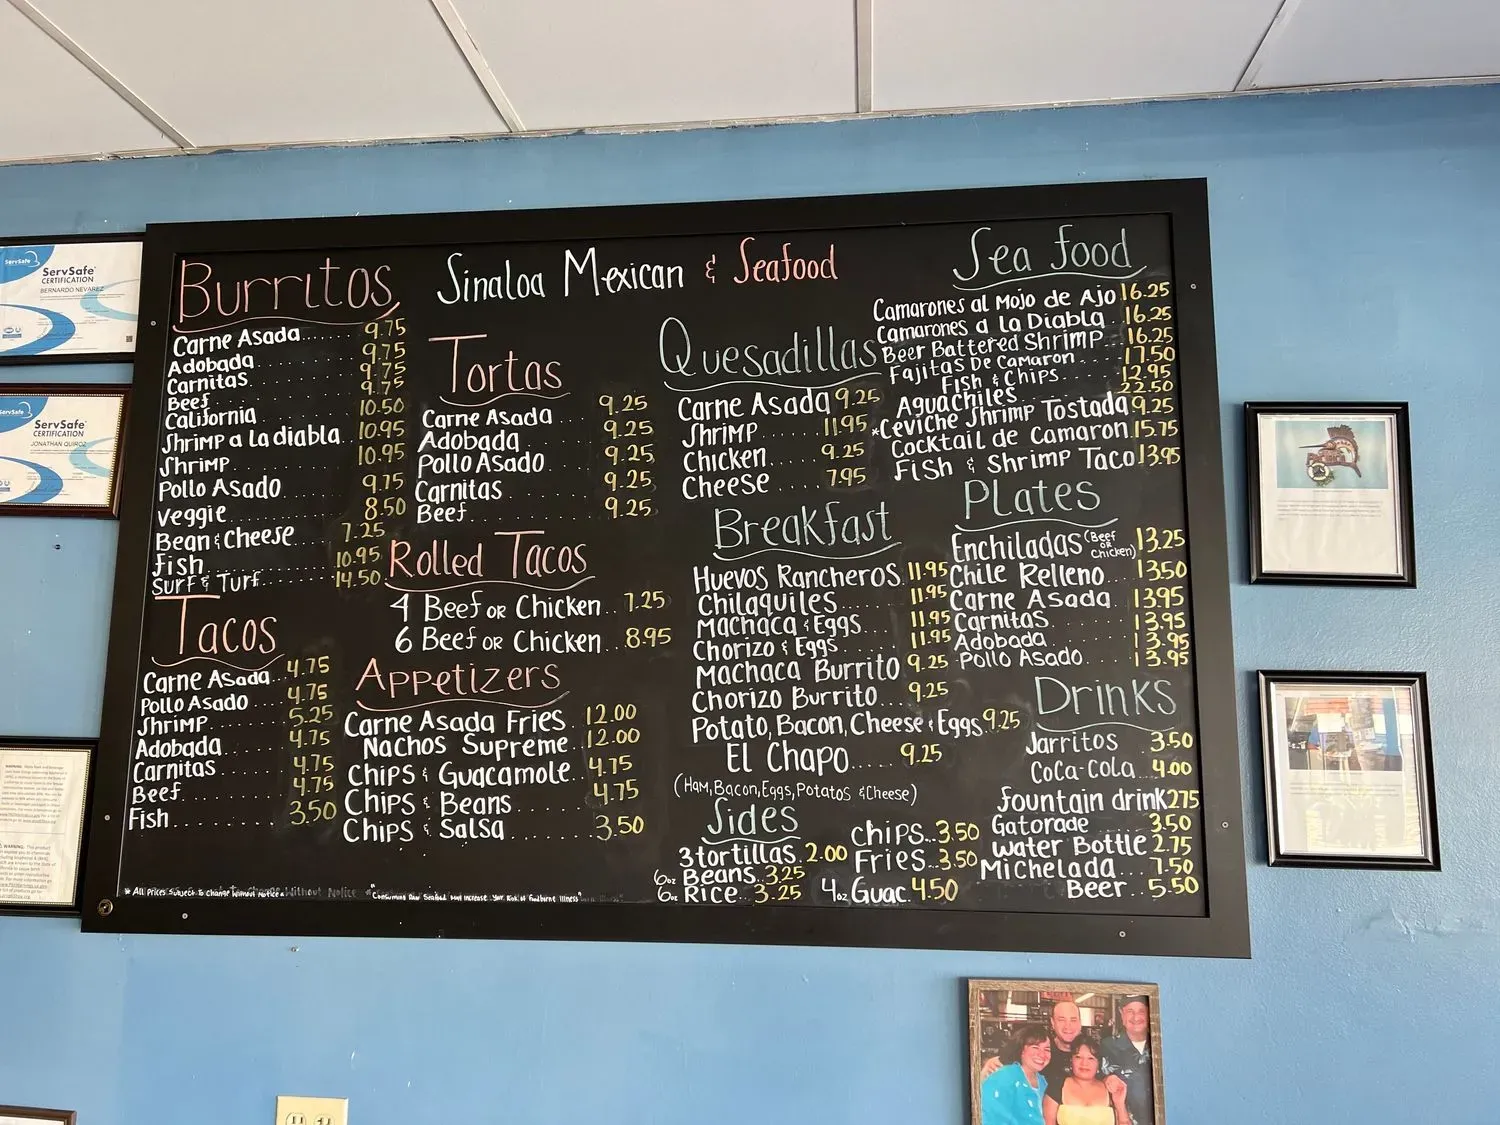 Sinaloa Mexican & Seafood
Burritos
Carne Asada....... 9.75
Adobada 9.75
Carnitas 9.75
Beef 9.75
California 10.50
Shrimp a la diabla.. 10.95
Shrimp 10.95
Pollo Asado 9.75
Veggie 8.50
Bean & Cheese 7.25
Fish 10.95
Surf & Turf 14.50
Tacos
Carne Asada 4.75
Pollo Asado 4.75
Shrimp 5.25
Adobada 4.75
Carnitas 4.75
Beef 4.75
Fish 3.50
Tortas
Carne Asada 9.25
Adobada 9.25
Pollo Asado 9.25
Carnitas 9.25
Beef 9.25
Rolled Tacos
4 Beef or Chicken.. 7.25
6 Beef or Chicken... 8.95
Appetizers
Carne Asada Fries.. 12.00
Nachos Supreme.. 12.00
Chips & Guacamole.. 4.75
Chips & Beans 4.75
Chips & Salsa 3.50
Quesadillas
Carne Asada 9.25
Shrimp 11.95
Chicken 9.25
Cheese .... 7.95
Breakfast
Huevos Rancheros. 11.95
Chilaquiles 11.95
Machaca & Eggs... 11.95
Chorizo & Eggs 11.95
Machaca Burrito 9.25
Chorizo Burrito... 9.25
Potato, Bacon, Cheese & Eggs 9.25
El Chapo.... 9.25
(Ham, Bacon, Eggs, Potatos & Cheese)
Sides
3 tortillas. 2.00
6oz Beans. 3.25
6oz Rice.. 3.25
chips.. 3.50
Fries.. 3.50
4oz Guac. 4.50
Sea food
Camarones al Mojo de Ajo 16.25
Camarones a la Diabla .. 16.25
Beer Battered Shrimp... 16.25
Fajitas De Camaron.... 17.50
Fish & Chips..... 12.95
Aguachiles 22.50
*Ceviche Shrimp Tostada 9.25
Cocktail de Camaron. 15.75
Fish & Shrimp Taco 13.95
Plates
Enchiladas (Beef or Chicken) 13.25
Chile Relleno... 13.50
Carne Asada 13.95
Carnitas 13.95
Adobada 13.95
Pollo Asado 13.95
Drinks
Jarritos 3.50
Coca-Cola 4.00
fountain drink 2.75
Gatorade 3.50
Water Bottle 2.75
Michelada 7.50
Beer .. 5.50
* All Prices Subject to Change Without Notice *
"Consuming Raw Seafood May Increase Your Risk of Foodborne Illness"
ServSafe
ServSafe
CERTIFICATION
BERNARDO NEVAREZ
ServSafe
ServSafe
CERTIFICATION
JONATHAN QUIROZ